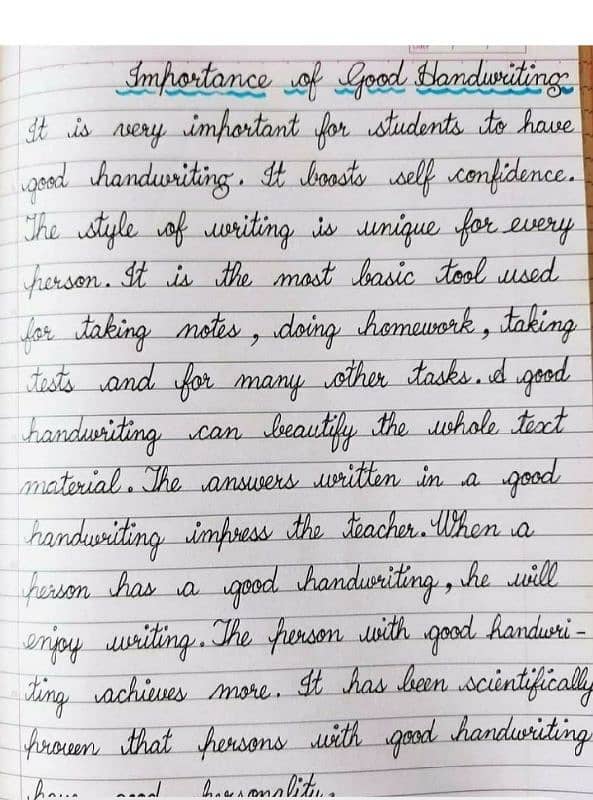 Importance of Good Handwriting
It is very important for students to have
good handwriting. It boosts self confidence.
The style of writing is unique for every
person. It is the most basic tool used
for taking notes, doing homework, taking
tests and for many other tasks. A good
handwriting can beautify the whole text
material. The answers written in a good
handwriting impress the teacher. When a
person has a good handwriting, he will
enjoy writing. The person with good handwri-
ting achieves more. It has been scientifically
proven that persons with good handwriting
have good personality.